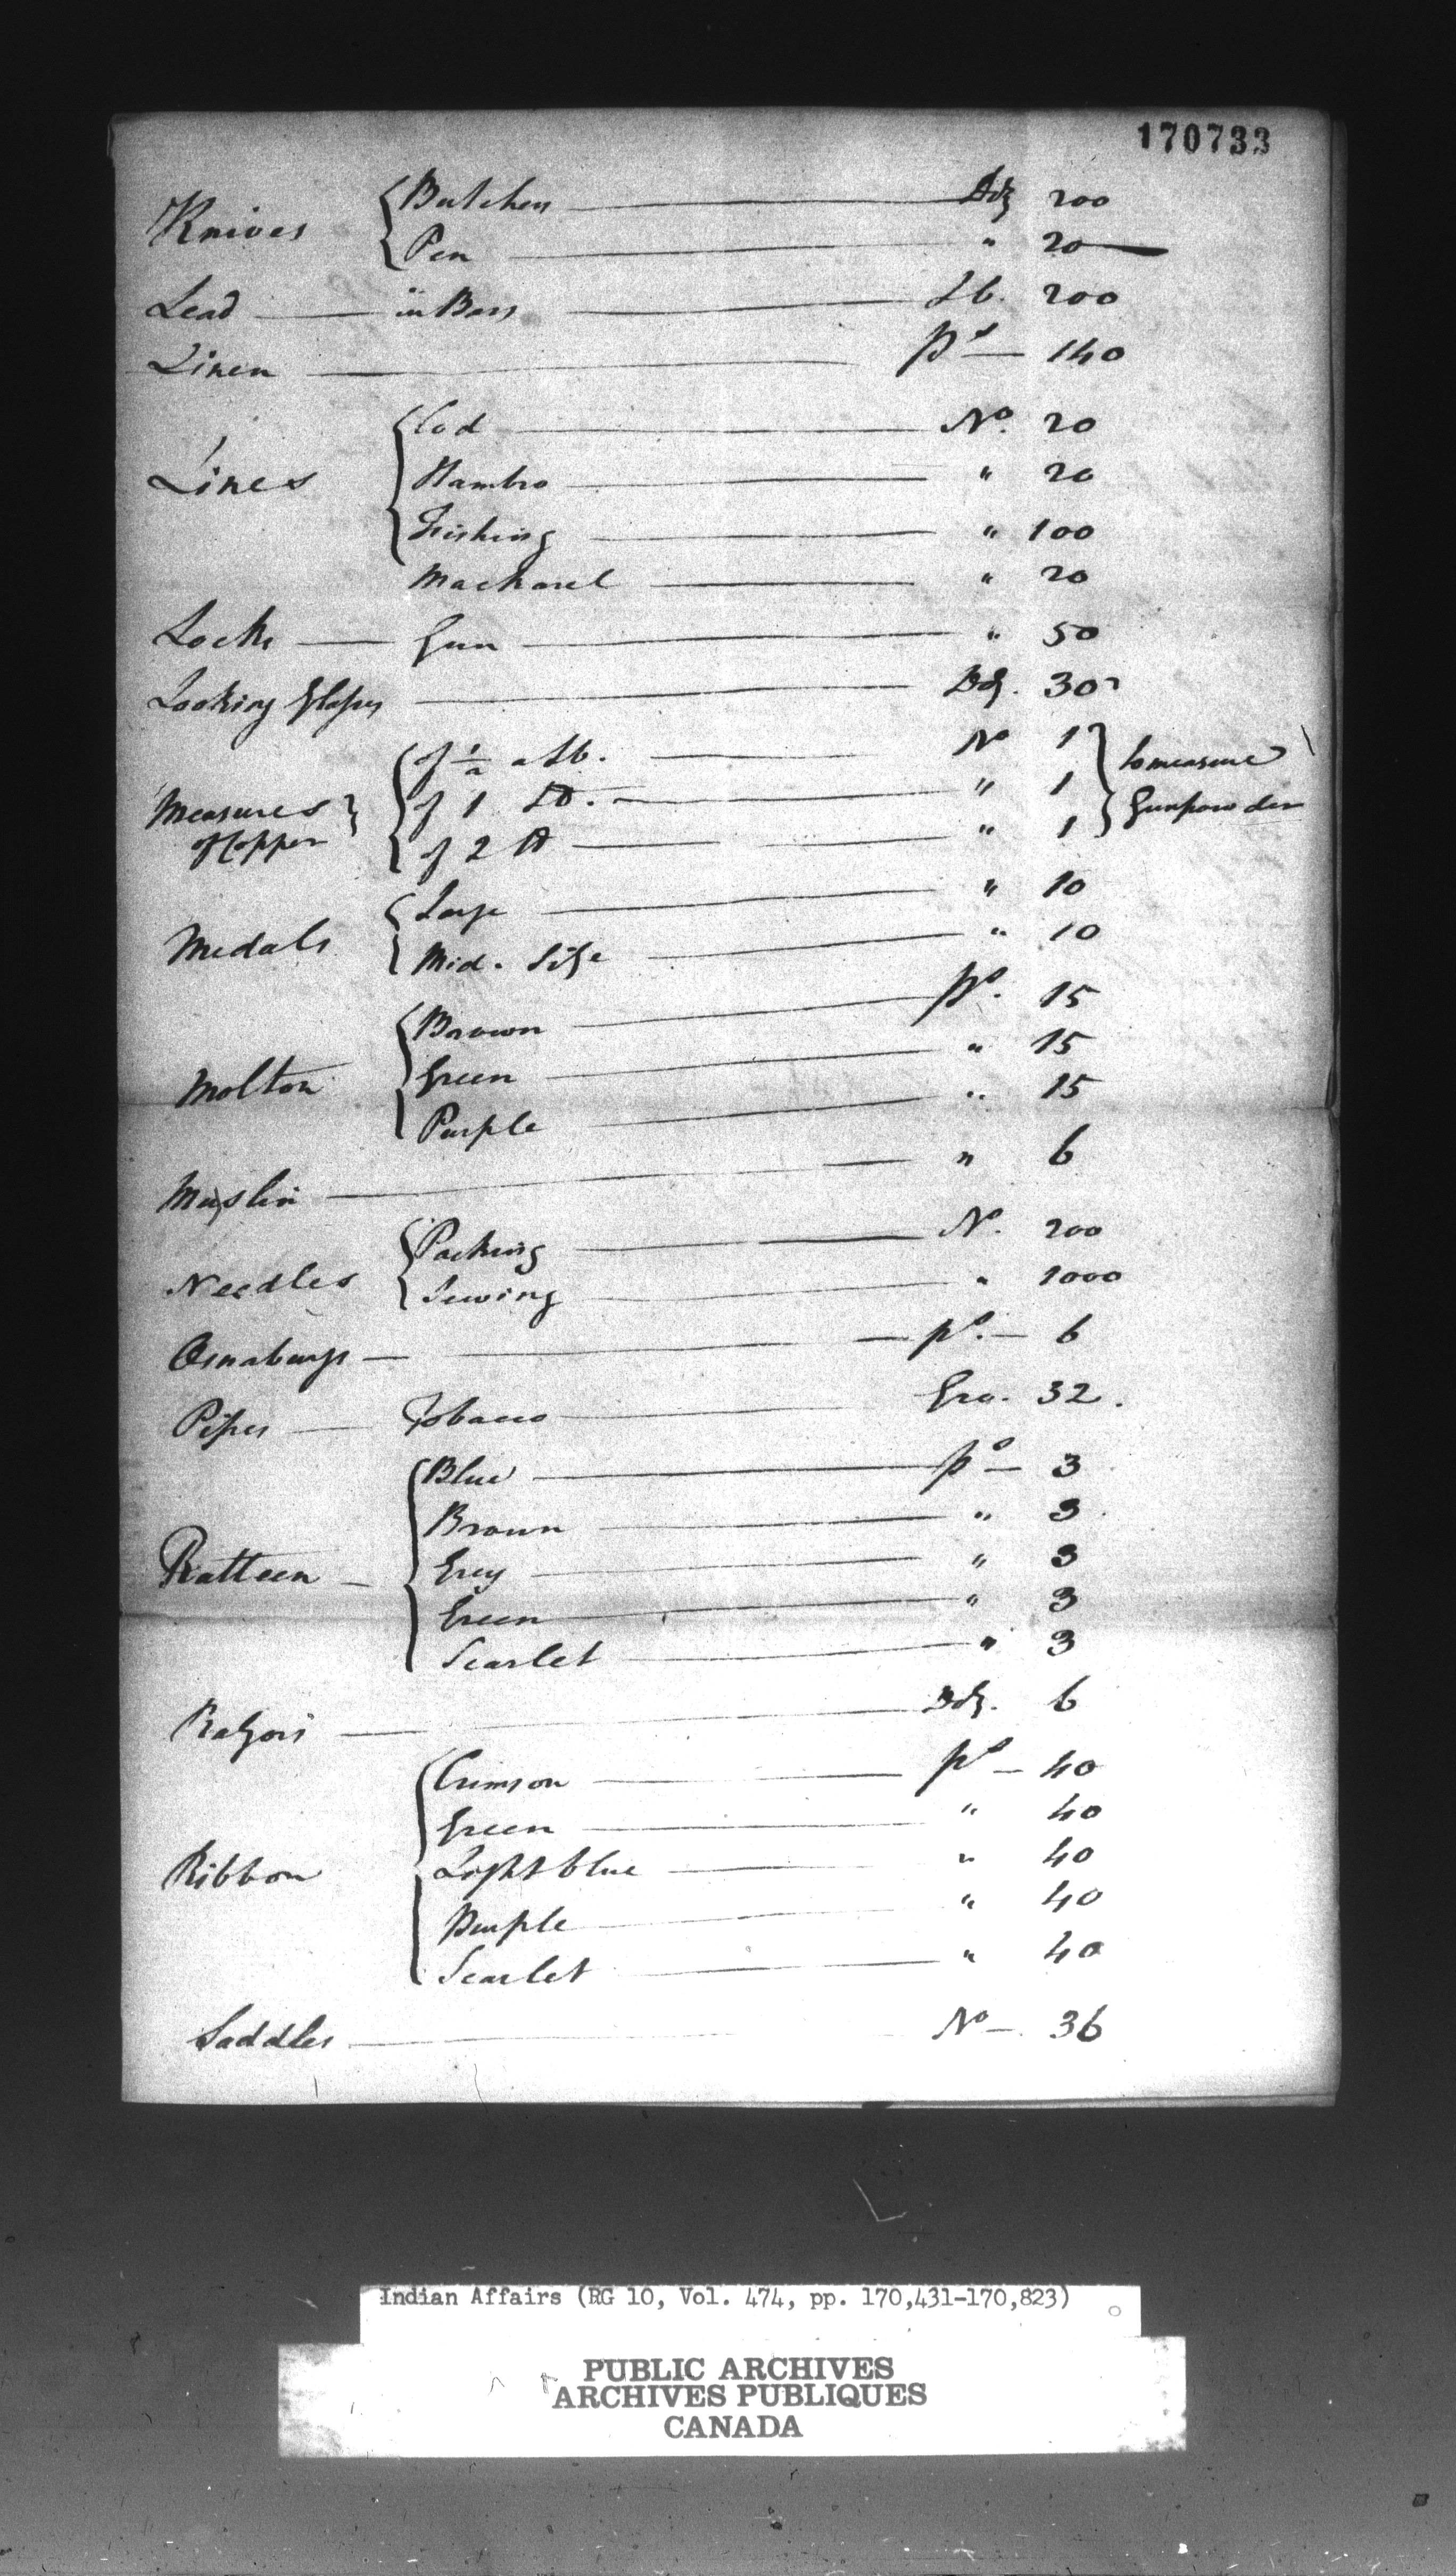 170733
Knives { Butchers — Doz 200
{ Pen — " 20 —
Lead — in Bars — Lb. 200
Linen — Ps — 140
Lines { Cod — No. 20
{ Hambro — " 20
{ Fishing — " 100
Mackarel — " 20
Locks — Gun — " 50
Looking Glasses — Doz. 30
Measures of Copper } { of ½ a Lb. — No 1 } to measure Gunpowder
{ of 1 Lb. — " 1
{ of 2 lb — " 1
Medals { Large — " 10
{ Mid. Size — " 10
Molton { Brown — Ps. 15
{ Green — " 15
{ Purple — " 15
Muslin — " 6
Needles { Packing — No. 200
{ Sewing — " 1000
Osnaburgs — ps. — 6
Pipes — Tobacco — Gro. 32.
Ratteen — { Blue — ps — 3
{ Brown — " 3
{ Grey — " 3
{ Green — " 3
{ Scarlet — " 3
Razors — Doz. 6
Ribbon { Crimson — ps — 40
{ Green — " 40
{ Light blue — " 40
{ Purple — " 40
{ Scarlet — " 40
Saddles — No — 36
Indian Affairs (RG 10, Vol. 474, pp. 170,431-170,823)
PUBLIC ARCHIVES
ARCHIVES PUBLIQUES
CANADA